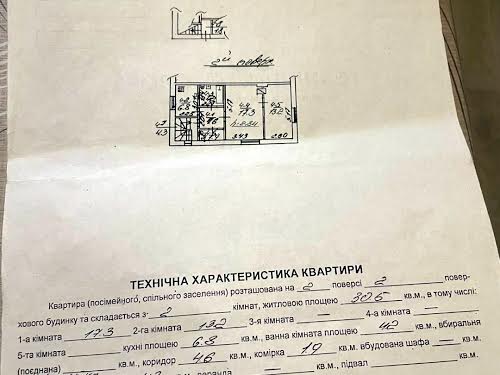 2й поверх
4-4
17.3
h-2.54
4-5
13.2
4-1
4.3
3.43
2.80
ТЕХНІЧНА ХАРАКТЕРИСТИКА КВАРТИРИ
Квартира (посімейного, спільного заселення) розташована на 2 поверсі 2 повер-
хового будинку та складається з 2 кімнат, житловою площею 30.5 кв.м., в тому числі:
1-а кімната 17.3 2-га кімната 13.2 3-я кімната — 4-а кімната —
5-та кімната — кухні площею 6.8 кв.м., ванна кімната площею 4.2 кв.м., вбиральня
(поєднана) кв.м., коридор 4.6 кв.м., комірка 1.9 кв.м. вбудована шафа — кв.м.
кв.м., веранда кв.м., підвал кв.м.